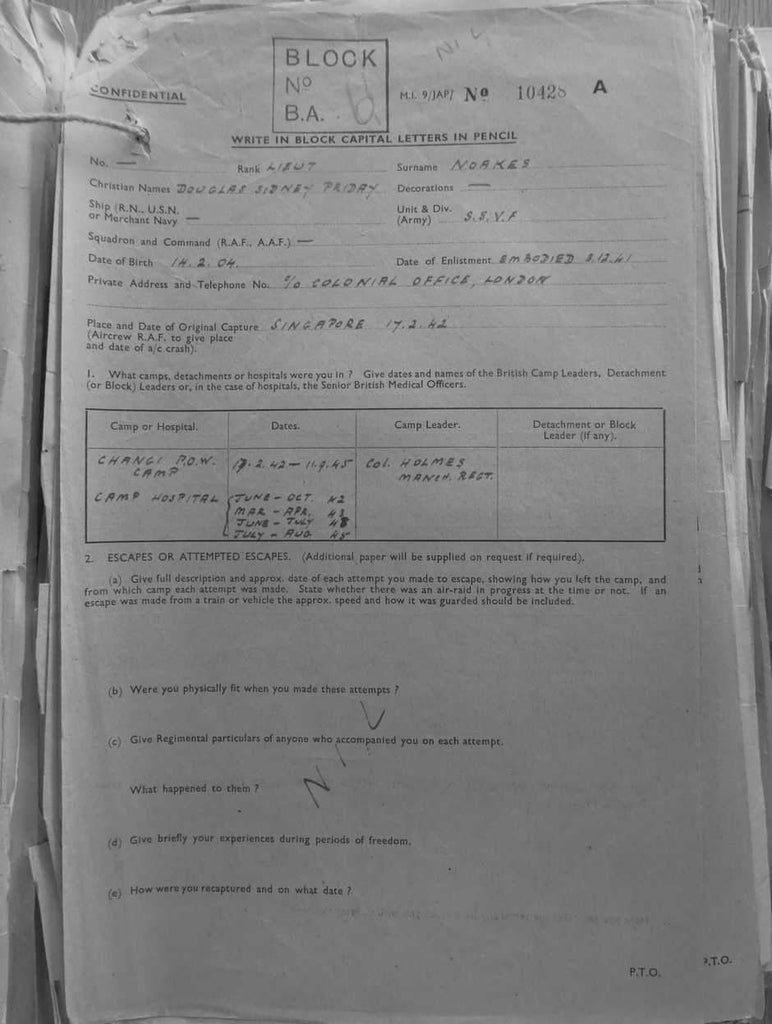 BLOCK
No
B.A.
CONFIDENTIAL
M.I. 9/JAP/ No 10428 A
WRITE IN BLOCK CAPITAL LETTERS IN PENCIL
No. — Rank LIEUT Surname NOAKES
Christian Names DOUGLAS SIDNEY PRIDAY Decorations —
Ship (R.N., U.S.N. or Merchant Navy — Unit & Div. (Army) S.S.V.F
Squadron and Command (R.A.F., A.A.F.) —
Date of Birth 14.2.04. Date of Enlistment EMBODIED 8.12.41
Private Address and Telephone No. c/o COLONIAL OFFICE, LONDON
Place and Date of Original Capture SINGAPORE 17.2.42
(Aircrew R.A.F. to give place
and date of a/c crash).
1. What camps, detachments or hospitals were you in ? Give dates and names of the British Camp Leaders, Detachment
(or Block) Leaders or, in the case of hospitals, the Senior British Medical Officers.
Camp or Hospital. Dates. Camp Leader. Detachment or Block Leader (if any).
CHANGI P.O.W. CAMP 17.2.42 – 11.9.45 COL. HOLMES MANCH. REGT.
CAMP HOSPITAL JUNE – OCT. 42
MAR – APR.
JUNE – JULY
JULY – AUG 45
2. ESCAPES OR ATTEMPTED ESCAPES. (Additional paper will be supplied on request if required).
(a) Give full description and approx. date of each attempt you made to escape, showing how you left the camp, and
from which camp each attempt was made. State whether there was an air-raid in progress at the time or not. If an
escape was made from a train or vehicle the approx. speed and how it was guarded should be included.
(b) Were you physically fit when you made these attempts ?
(c) Give Regimental particulars of anyone who accompanied you on each attempt.
What happened to them ?
(d) Give briefly your experiences during periods of freedom.
(e) How were you recaptured and on what date ?
P.T.O.
P.T.O.